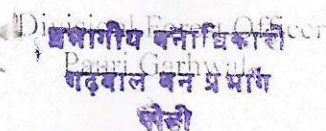 Divisional Forest Officer
प्रभागीय वनाधिकारी
Pauri Garhwal
गढ़वाल वन प्रभाग
पौड़ी